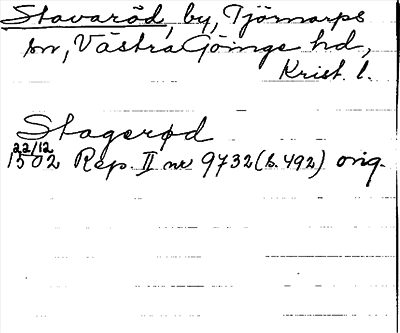 Stavaröd, by, Tjörnarps
sn, Västra Göinge hd,
Krist. l.
Stagerød
22/12
1502 Rep. II nr 9732 (s. 492) orig.